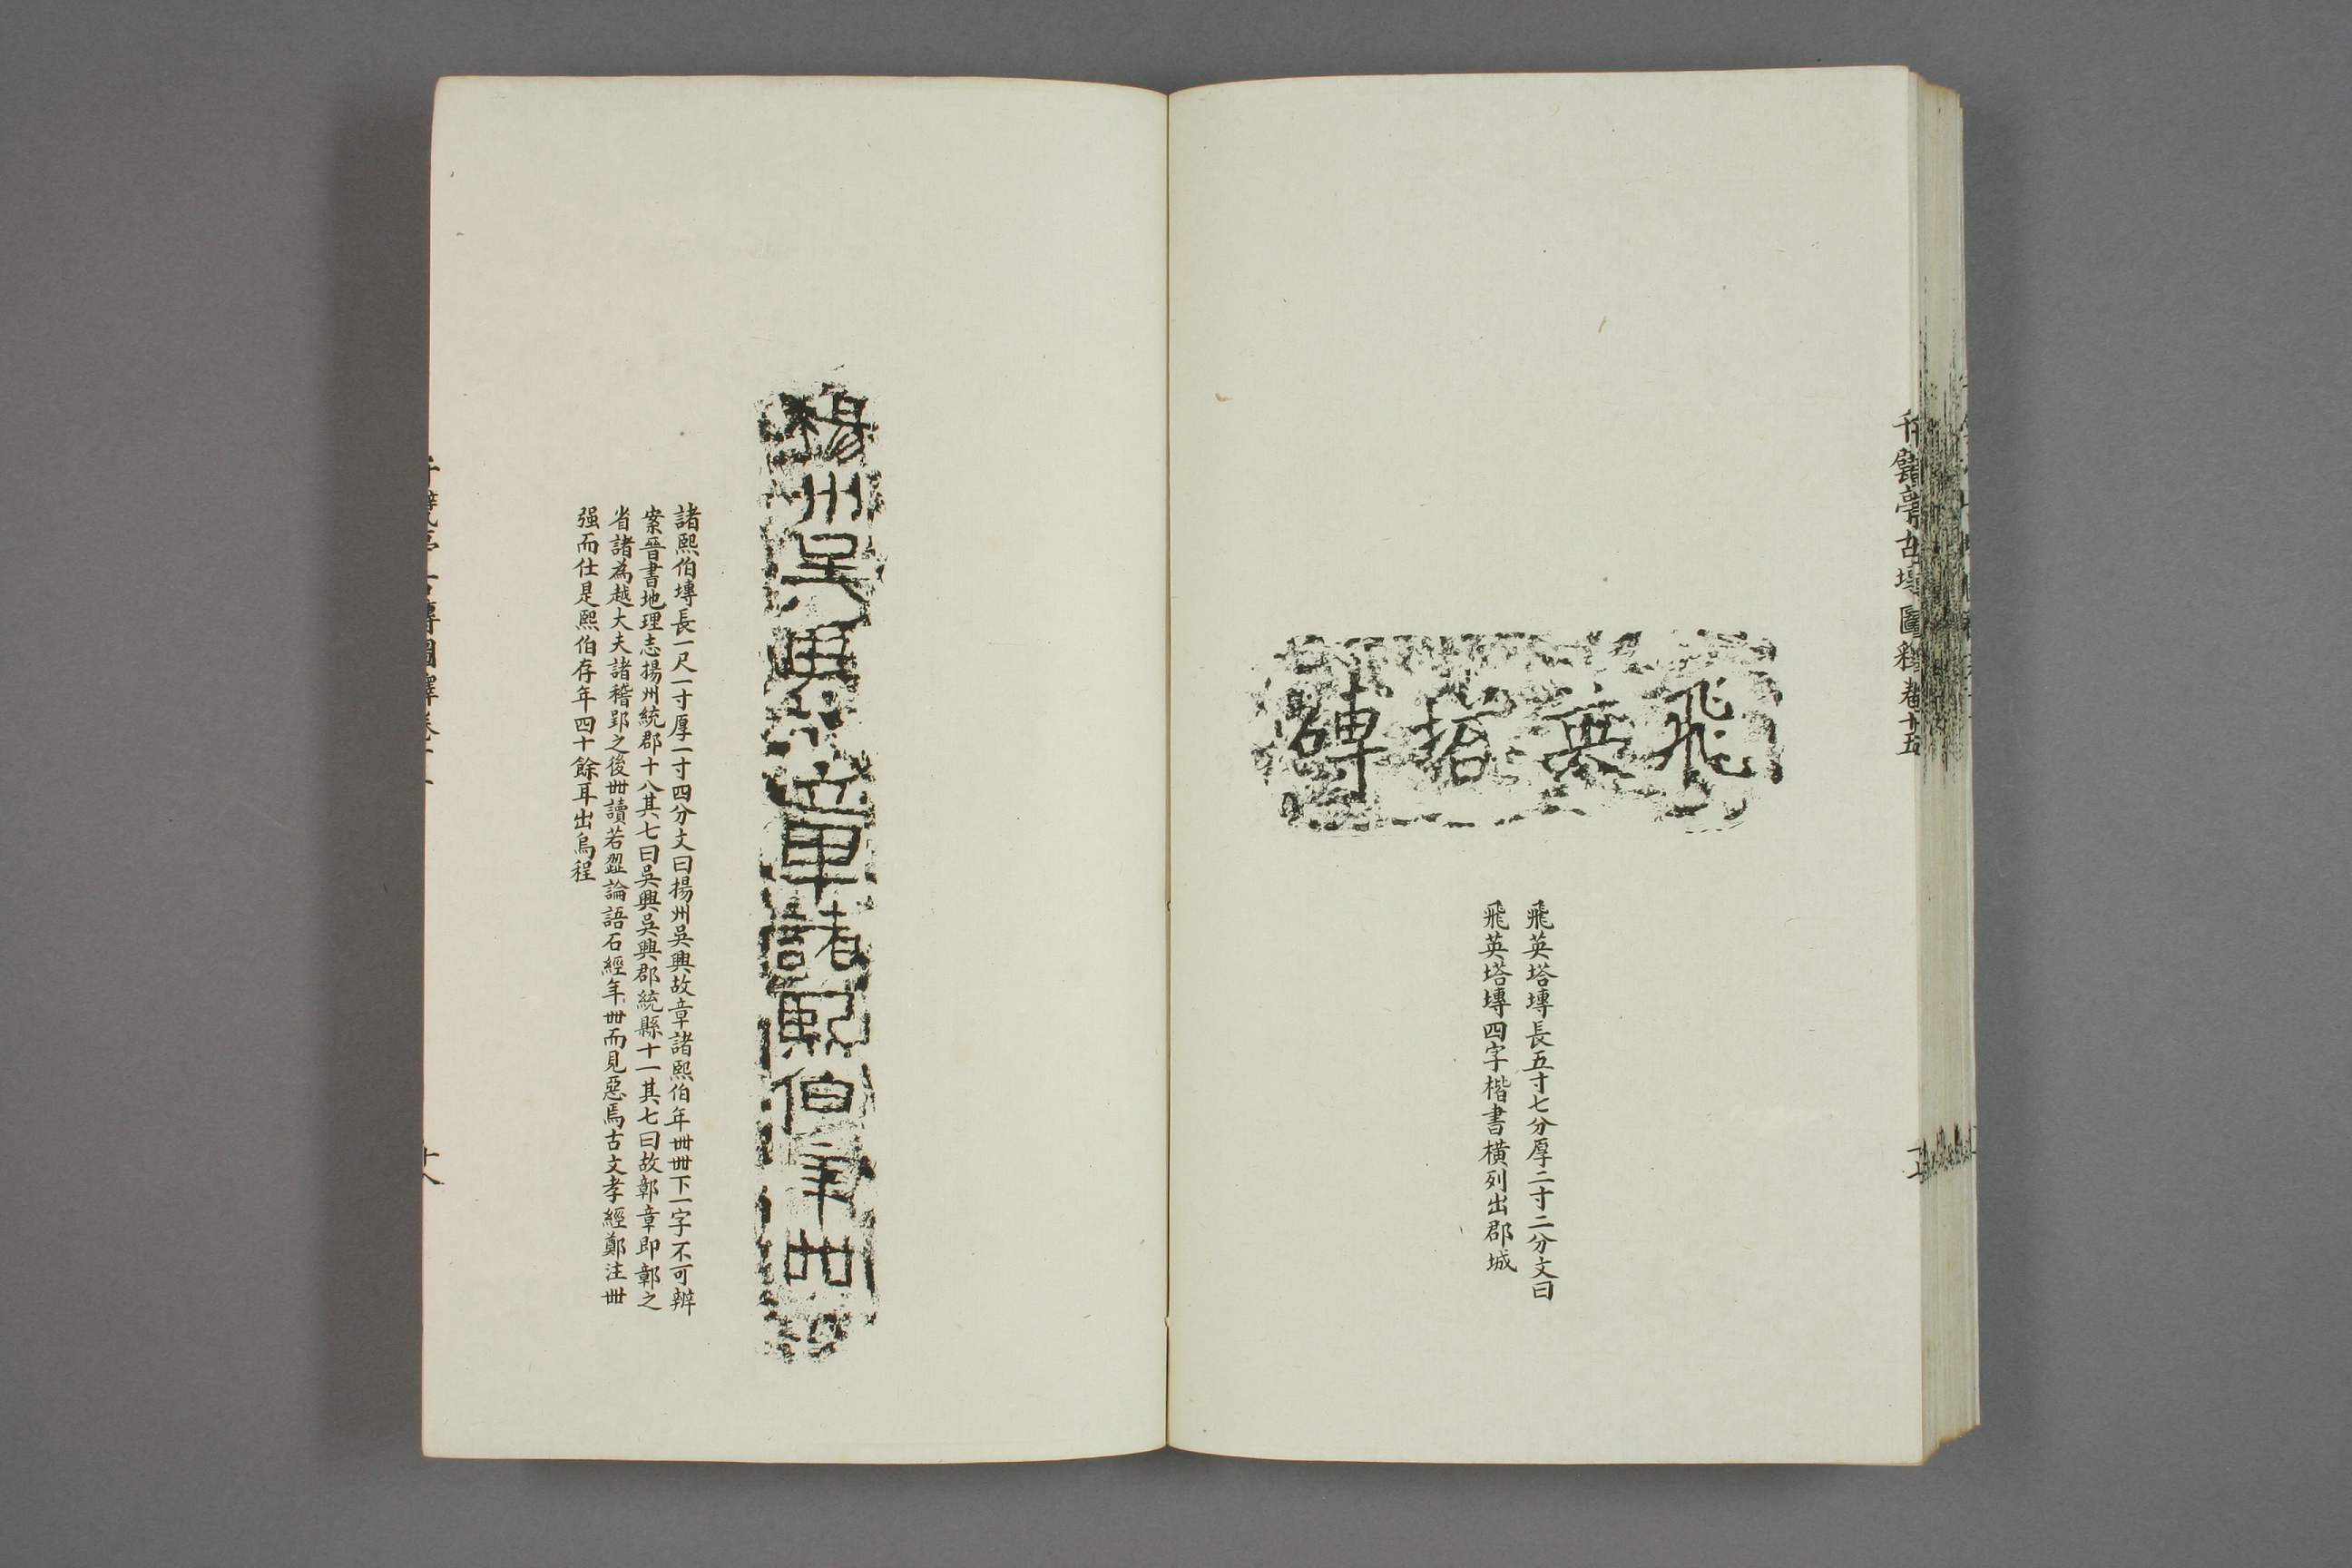 千甓亭古塼圖釋卷十五
飛英塔磚
飛英塔塼長五寸七分厚二寸二分文曰
飛英塔塼四字楷書橫列出郡城
揚州吳興故章諸熙伯年卌
諸熙伯塼長一尺一寸厚一寸四分文曰揚州吳興故章諸熙伯年卌卌下一字不可辨
案晉書地理志揚州統郡十八其七曰吳興吳興郡統縣十一其七曰故鄣章即鄣之
省諸為越大夫諸稽郢之後卌讀若澀論語石經年卌而見惡焉古文孝經鄭注卌
强而仕是熙伯存年四十餘耳出烏程